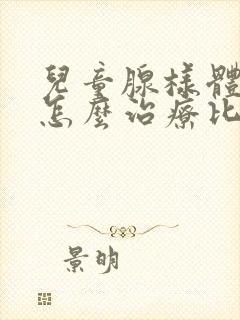 兒童腺樣體
怎麼治療比
景明